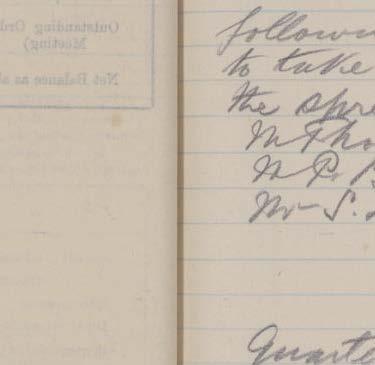 Outstanding Ord
Meeting)
Net Balance as a
follow
to take
the spre
M Tho
M P.
Mr S.
Quarte